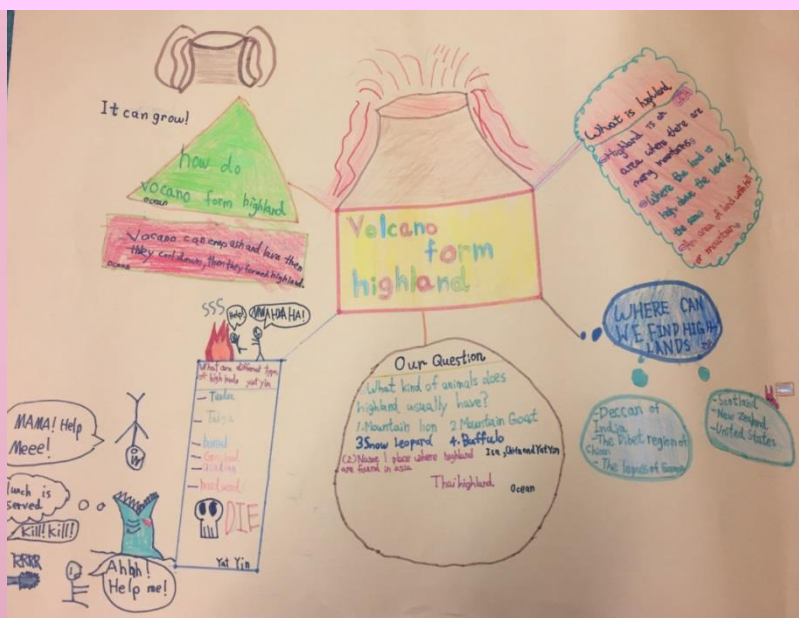 It can grow!
how do
vocano form highland
ocean
Vocano can erup ash and lava then
they cool down, then they formed highland.
ocean
Volcano
form
highland
What is highland
Highland is an
area where there are
many mountains
Where the land is
high above the level of
the sea
An area of land with hill
or mountain
WHERE CAN
WE FIND HIGH-
LANDS
-Deccan of
India
-The Tibet region of
- Scotland
- New Zealand
- United States
Our Question
What kind of animals does
highland usually have?
1. Mountain lion 2. Mountain Goat
3 Snow Leopard 4. Buffalo
(2) Name 1 place where highland
are found in asia
Thai highland
Ocean
SSS
Help!
MWAHAHA!
What are different type
of highlands yat yin
- Taiga
DIE
Yat Yin
MAMA! Help
Meee!
lunch is
served
Kill! kill!
RRRR
Ahhh!
Help me!